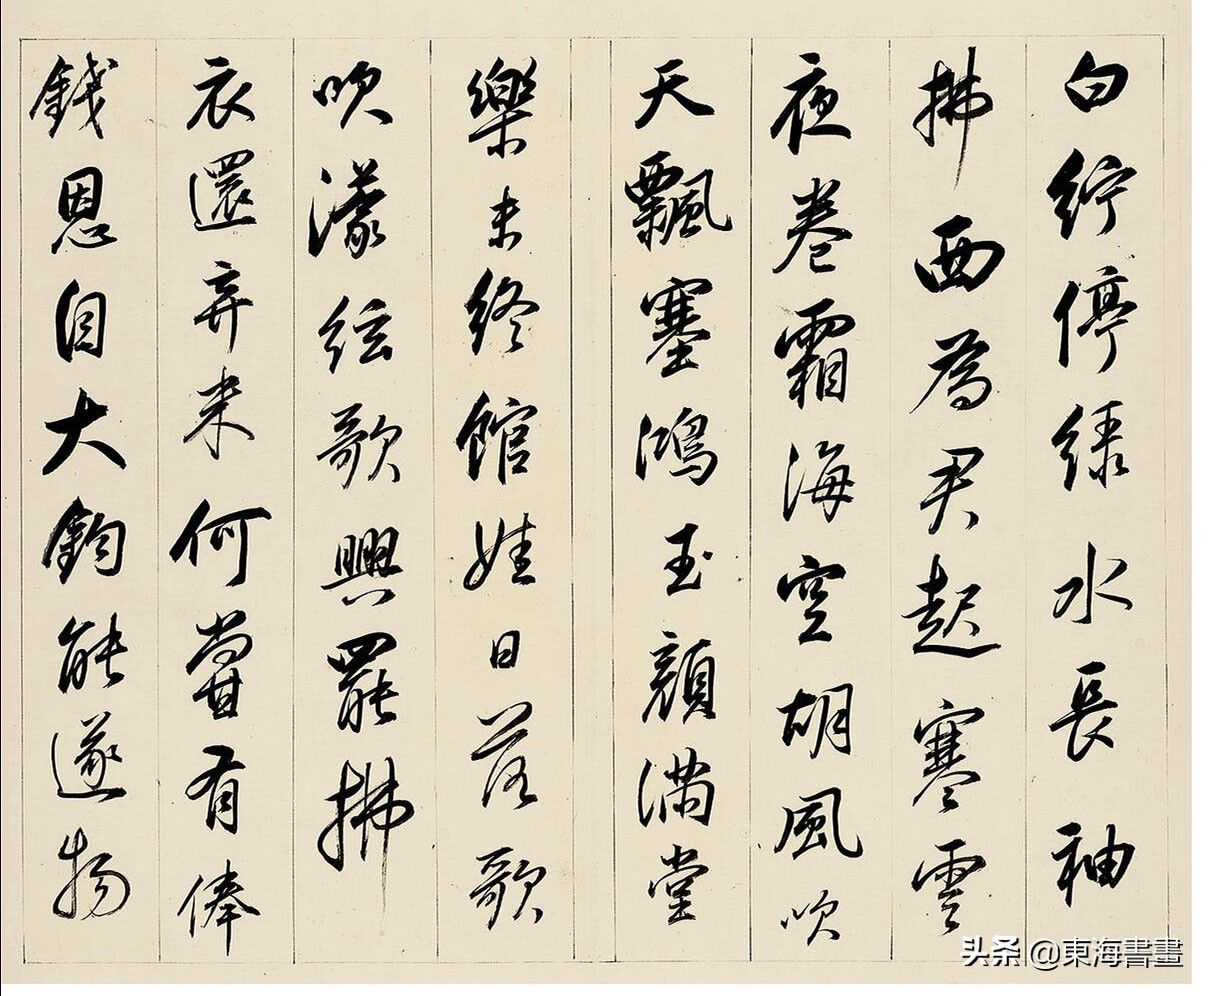 白紵停綠水長袖
拂面為君起寒雲
夜卷霜海空胡風吹
天飄塞鴻玉顏滿堂
樂未終館娃日落歌
吹濛絃歌興罷拂
衣還弃來何嘗有俸
錢恩自大鈞能遂物
头条 @東海書畫